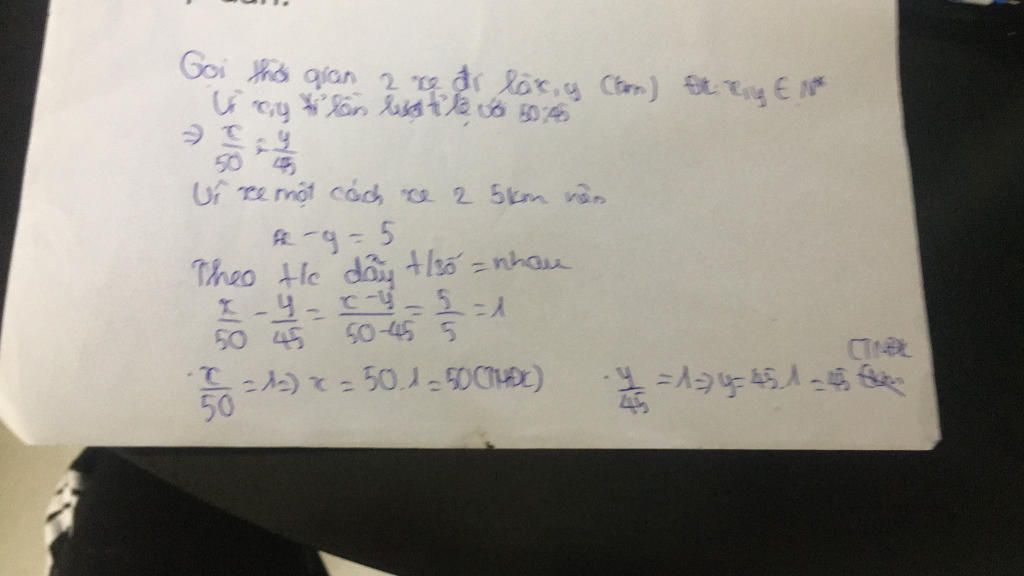 Gọi thời gian 2 xe đi là x, y (km) ĐK: x, y ∈ N*
Vì x, y tỉ lần lượt tỉ lệ với 50; 45
⇒ x/50 = y/45
Vì xe một cách xe 2 5km nên
x - y = 5
Theo t/c dãy t/số = nhau
x/50 - y/45 = x-y/50-45 = 5/5 = 1
· x/50 = 1 ⇒ x = 50.1 = 50 (TMĐK) · y/45 = 1 ⇒ y = 45.1 = 45 (TMĐK